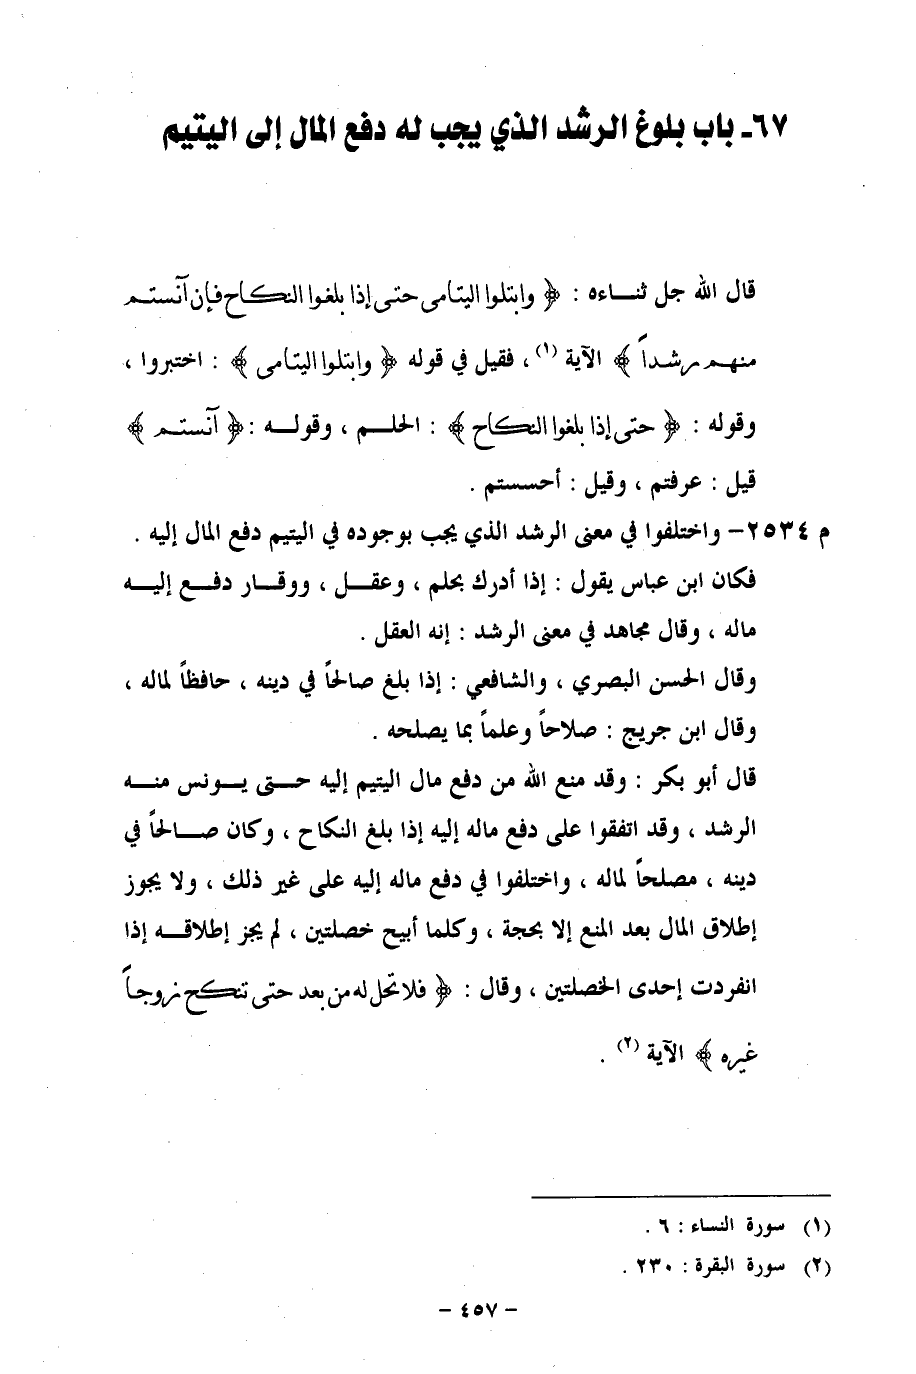 ٦٧ـ باب بلوغ الرشد الذي يجب له دفع المال إلى اليتيم
قال الله جل ثنــاءه : ﴿ وابتلوا اليتامى حتى إذا بلغوا النكاح فإن آنستم
منهم رشداً ﴾ الآية (١) ، فقيل في قوله ﴿ وابتلوا اليتامى ﴾ : اختبروا ،
وقوله : ﴿ حتى إذا بلغوا النكاح ﴾ : الحلـــم ، وقولــه : ﴿ آنستم ﴾
قيل : عرفتم ، وقيل : أحسستم .
م ٢٥٣٤ – واختلفوا في معنى الرشد الذي يجب بوجوده في اليتيم دفع المال إليه .
فكان ابن عباس يقول : إذا أدرك بحلم ، وعقــل ، ووقــار دفــع إليــه
ماله ، وقال مجاهد في معنى الرشد : إنه العقل .
وقال الحسن البصري ، والشافعي : إذا بلغ صالحاً في دينه ، حافظاً لماله ،
وقال ابن جريج : صلاحاً وعلماً بما يصلحه .
قال أبو بكر : وقد منع الله من دفع مال اليتيم إليه حــتى يــونس منــه
الرشد ، وقد اتفقوا على دفع ماله إليه إذا بلغ النكاح ، وكان صــالحاً في
دينه ، مصلحاً لماله ، واختلفوا في دفع ماله إليه على غير ذلك ، ولا يجوز
إطلاق المال بعد المنع إلا بحجة ، وكلما أبيح خصلتين ، لم يجز إطلاقــه إذا
انفردت إحدى الخصلتين ، وقال : ﴿ فلا تحل له من بعد حتى تنكح زوجاً
غيره ﴾ الآية (٢) .
(١) سورة النساء : ٦ .
(٢) سورة البقرة : ٢٣٠ .
– ٤٥٧ –